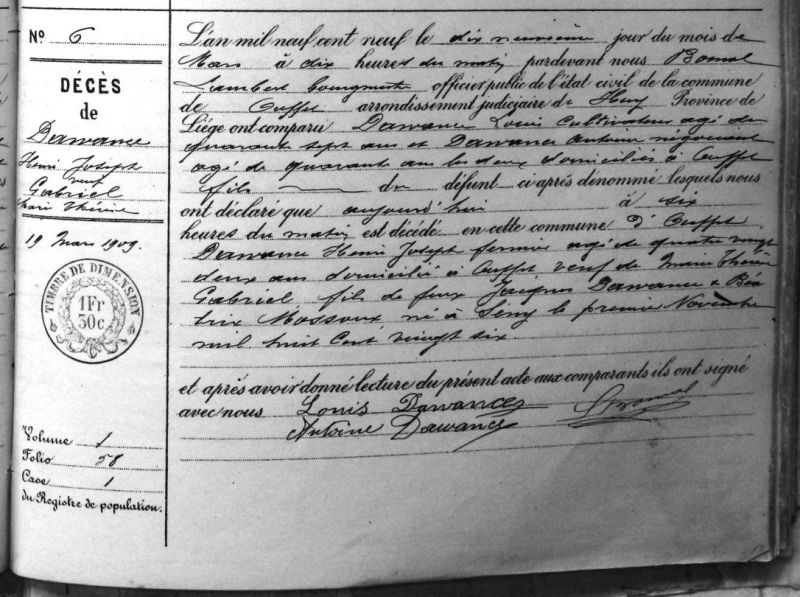 N° 6
DÉCÈS
de
Dawance
Henri Joseph
veuf
Gabriel
Marie Thérèse
19 Mars 1909.
TIMBRE DE DIMENSION
1Fr
30c
Volume 1
Folio 58
Case 1
du Registre de population.
L'an mil neuf cent neuf le dix neuvième jour du mois de
Mars à dix heures du matin pardevant nous Bomal
Lambert bourgmestre officier public de l'état civil de la commune
de Ouffet arrondissement judiciaire de Huy Province de
Liége ont comparu Dawance Louis Cultivateur agé de
quarante sept ans et Dawance Antoine négociant
agé de quarante ans les deux domiciliés à Ouffet
fils du défunt ci après dénommé lesquels nous
ont déclaré que aujourd'hui à six
heures du matin est décédé en cette commune d'Ouffet
Dawance Henri Joseph fermier agé de quatre vingt
deux ans domicilié à Ouffet veuf de Marie Thérèse
Gabriel, fils de feux Jacques Dawance & Béa
trix Mossoux né à Seny le premier Novembre
mil huit cent vingt six
et après avoir donné lecture du présent acte aux comparants ils ont signé
avec nous Louis Dawance
Antoine Dawance
LBomal